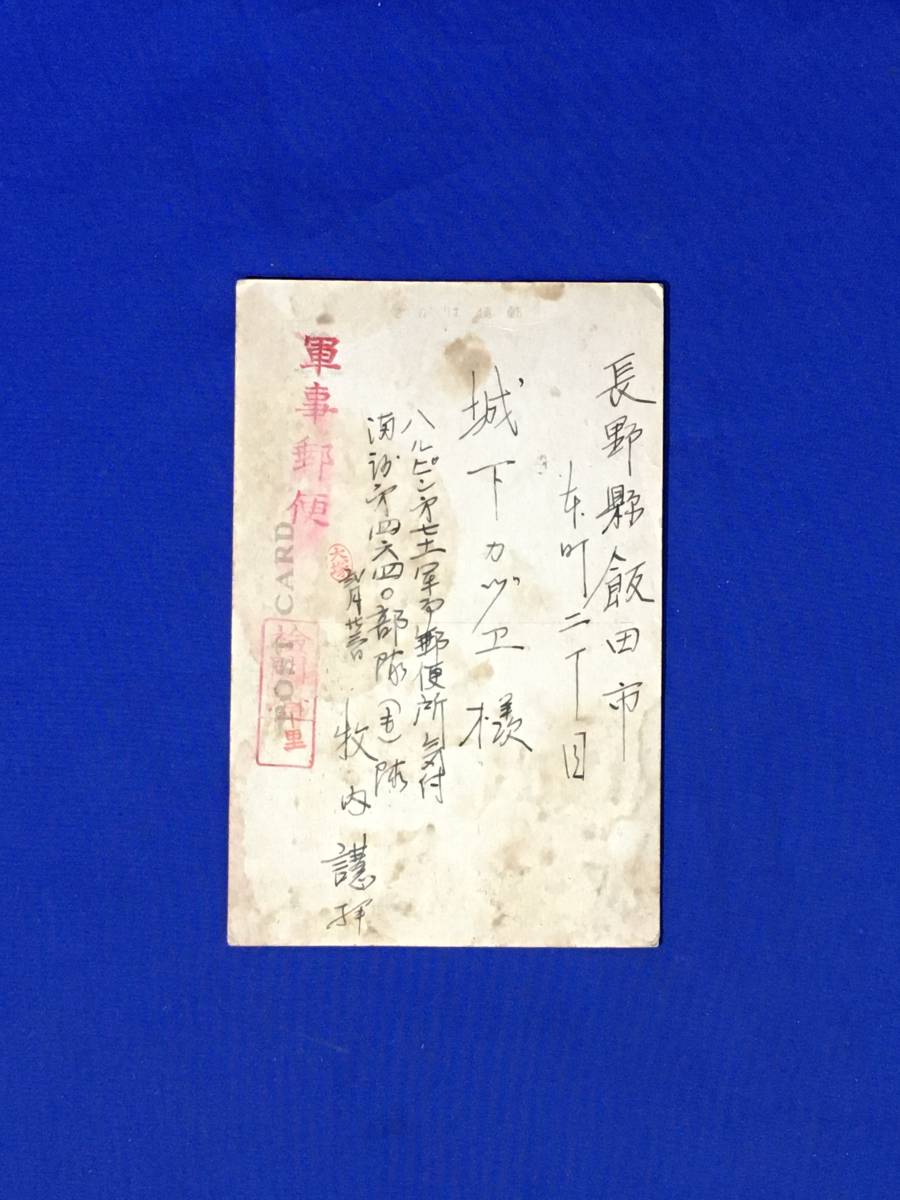 郵便はがき
長野縣飯田市
東町二丁目
城下カヅヱ様
ハルピン第七十一軍事郵便所気付
満洲第四六四〇部隊(五)隊
弐月廿三日
牧内譿拝
大塚
軍事郵便
POST CARD
検閲済
里